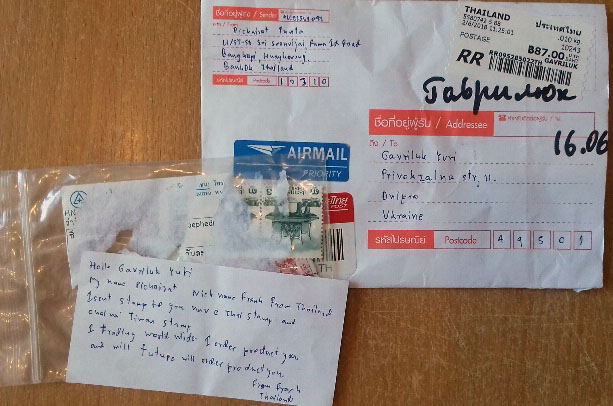 ชื่อที่อยู่ผู้ฝาก / Sender
Bangkok Thailand
รหัสไปรษณีย์ Postcode 1 2 3 1 0
THAILAND
ประเทศไทย
2/6/2018 11:25:01
.010 kg.
10243
POSTAGE
฿87.00
RR
GAVRILUK
Гаврилюк
16.06
ชื่อที่อยู่ผู้รับ / Addressee
ถึง / To
Gavriluk Yuri
Privokzalna str, 11.
Dnipro
Ukraine
รหัสไปรษณีย์ Postcode 4 9 5 0 1
AIRMAIL
PRIORITY
ไทย
POST
TH
Hello Gavriluk Yuri
My name Nick name Frank From Thailand
I sent stamp to you have Thai stamp and
stamp
I trading world wide. I order product you
and will future will order product you
From Frank
Thailand